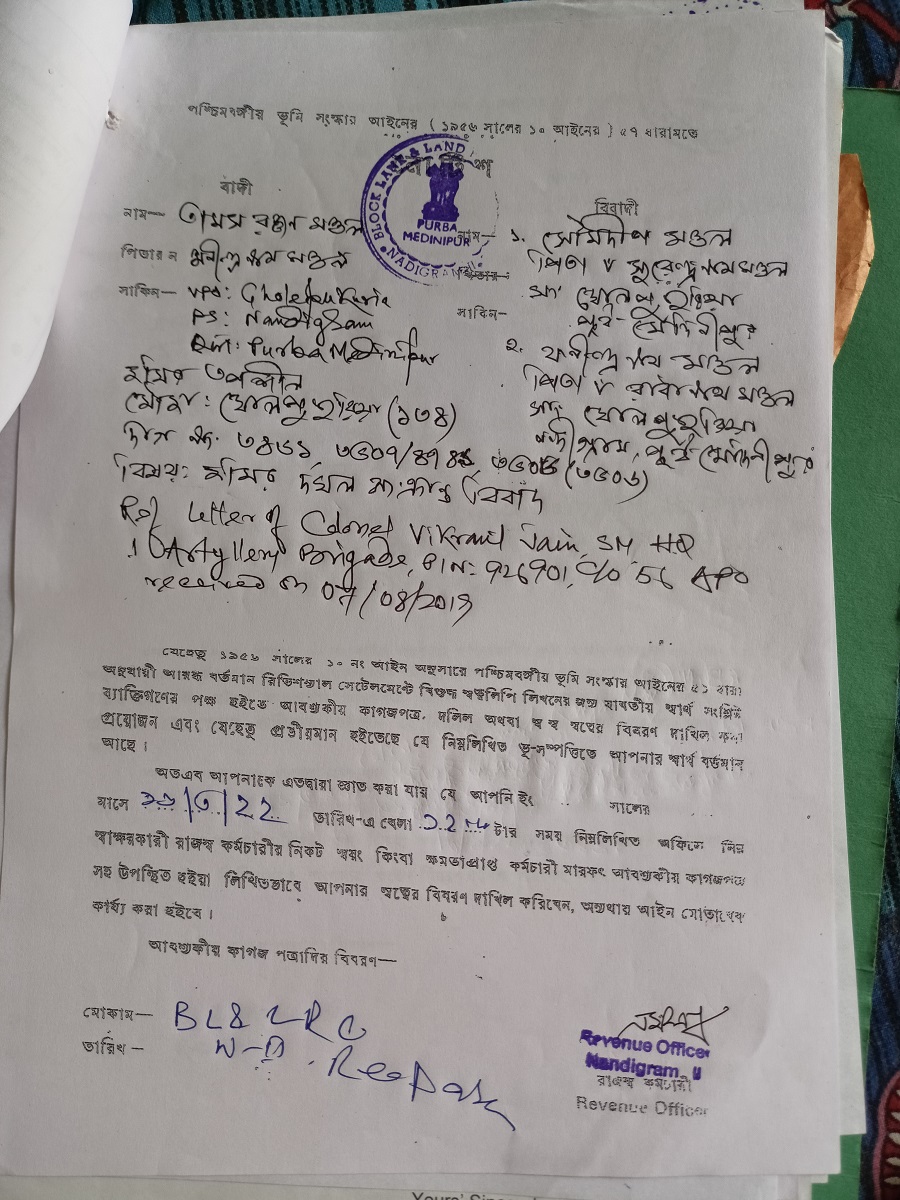 পশ্চিমবঙ্গীয় ভূমি সংস্কার আইনের ( ১৯৫৬ সালের ১০ আইনের ) ৫৭ ধারামতে
BLOCK LAND & LAND
PURBA
MEDINIPUR
NADIGRAM
বাদী
বিবাদী
নাম— তাপস রঞ্জন মণ্ডল
নাম— ১. সৌমিদীপ মণ্ডল
পিতার ন মনীন্দ্র নাথ মণ্ডল
পিতা ৺ সুরেন্দ্র নাথ মণ্ডল
সাকিন— vpo: Gholepukuria
সাং ঘোলপুকুরিয়া
PS: Nandigram
সাকিন— পূর্ব মেদিনীপুর
Dist: Purba Medinipur
২. ফনীন্দ্র নাথ মণ্ডল
পিতা ৺ রাধানাথ মণ্ডল
জমির তপশীল
সাং ঘোলপুকুরিয়া
মৌজা: ঘোলপুকুরিয়া (১৩৪)
নন্দীগ্রাম, পূর্ব মেদিনীপুর
দাগ নং:
বিষয়: জমির দখল সংক্রান্ত বিবাদ
Ref Letter of Colonel Vikrant Jain, SM, HQ
1 Artyllery Brigade, PIN: 926901, C/O 56 APO
received on 07/08/2019
যেহেতু ১৯৫৬ সালের ১০ নং আইন অনুসারে পশ্চিমবঙ্গীয় ভূমি সংস্কার আইনের ৫১ ধারা
অনুযায়ী আরব্ধ বর্তমান রিভিশন্যাল সেটেলমেন্টে বিশুদ্ধ স্বত্বলিপি লিখনের জন্য যাবতীয় স্বার্থ সংশ্লিষ্ট
ব্যক্তিগণের পক্ষ হইতে আবশ্যকীয় কাগজপত্র, দলিল অথবা স্ব স্ব স্বত্বের বিবরণ দাখিল করা
প্রয়োজন এবং যেহেতু প্রতীয়মান হইতেছে যে নিম্নলিখিত ভূ-সম্পত্তিতে আপনার স্বার্থ বর্তমান
আছে ।
অতএব আপনাকে এতদ্বারা জ্ঞাত করা যায় যে আপনি ইং সালের
মাসে ১১/৩/22 তারিখ-এ বেলা 12 টার সময় নিম্নলিখিত অফিসে নিম্ন
স্বাক্ষরকারী রাজস্ব কর্মচারীর নিকট স্বয়ং কিংবা ক্ষমতাপ্রাপ্ত কর্মচারী মারফৎ আবশ্যকীয় কাগজপত্র
সহ উপস্থিত হইয়া লিখিতভাবে আপনার স্বত্বের বিবরণ দাখিল করিবেন, অন্যথায় আইন মোতাবেক
কার্য্য করা হইবে ।
আবশ্যকীয় কাগজ পত্রাদির বিবরণ—
মোকাম— BL & LRO
তারিখ—
Revenue Officer
Nandigram II
রাজস্ব কর্মচারী
Revenue Officer